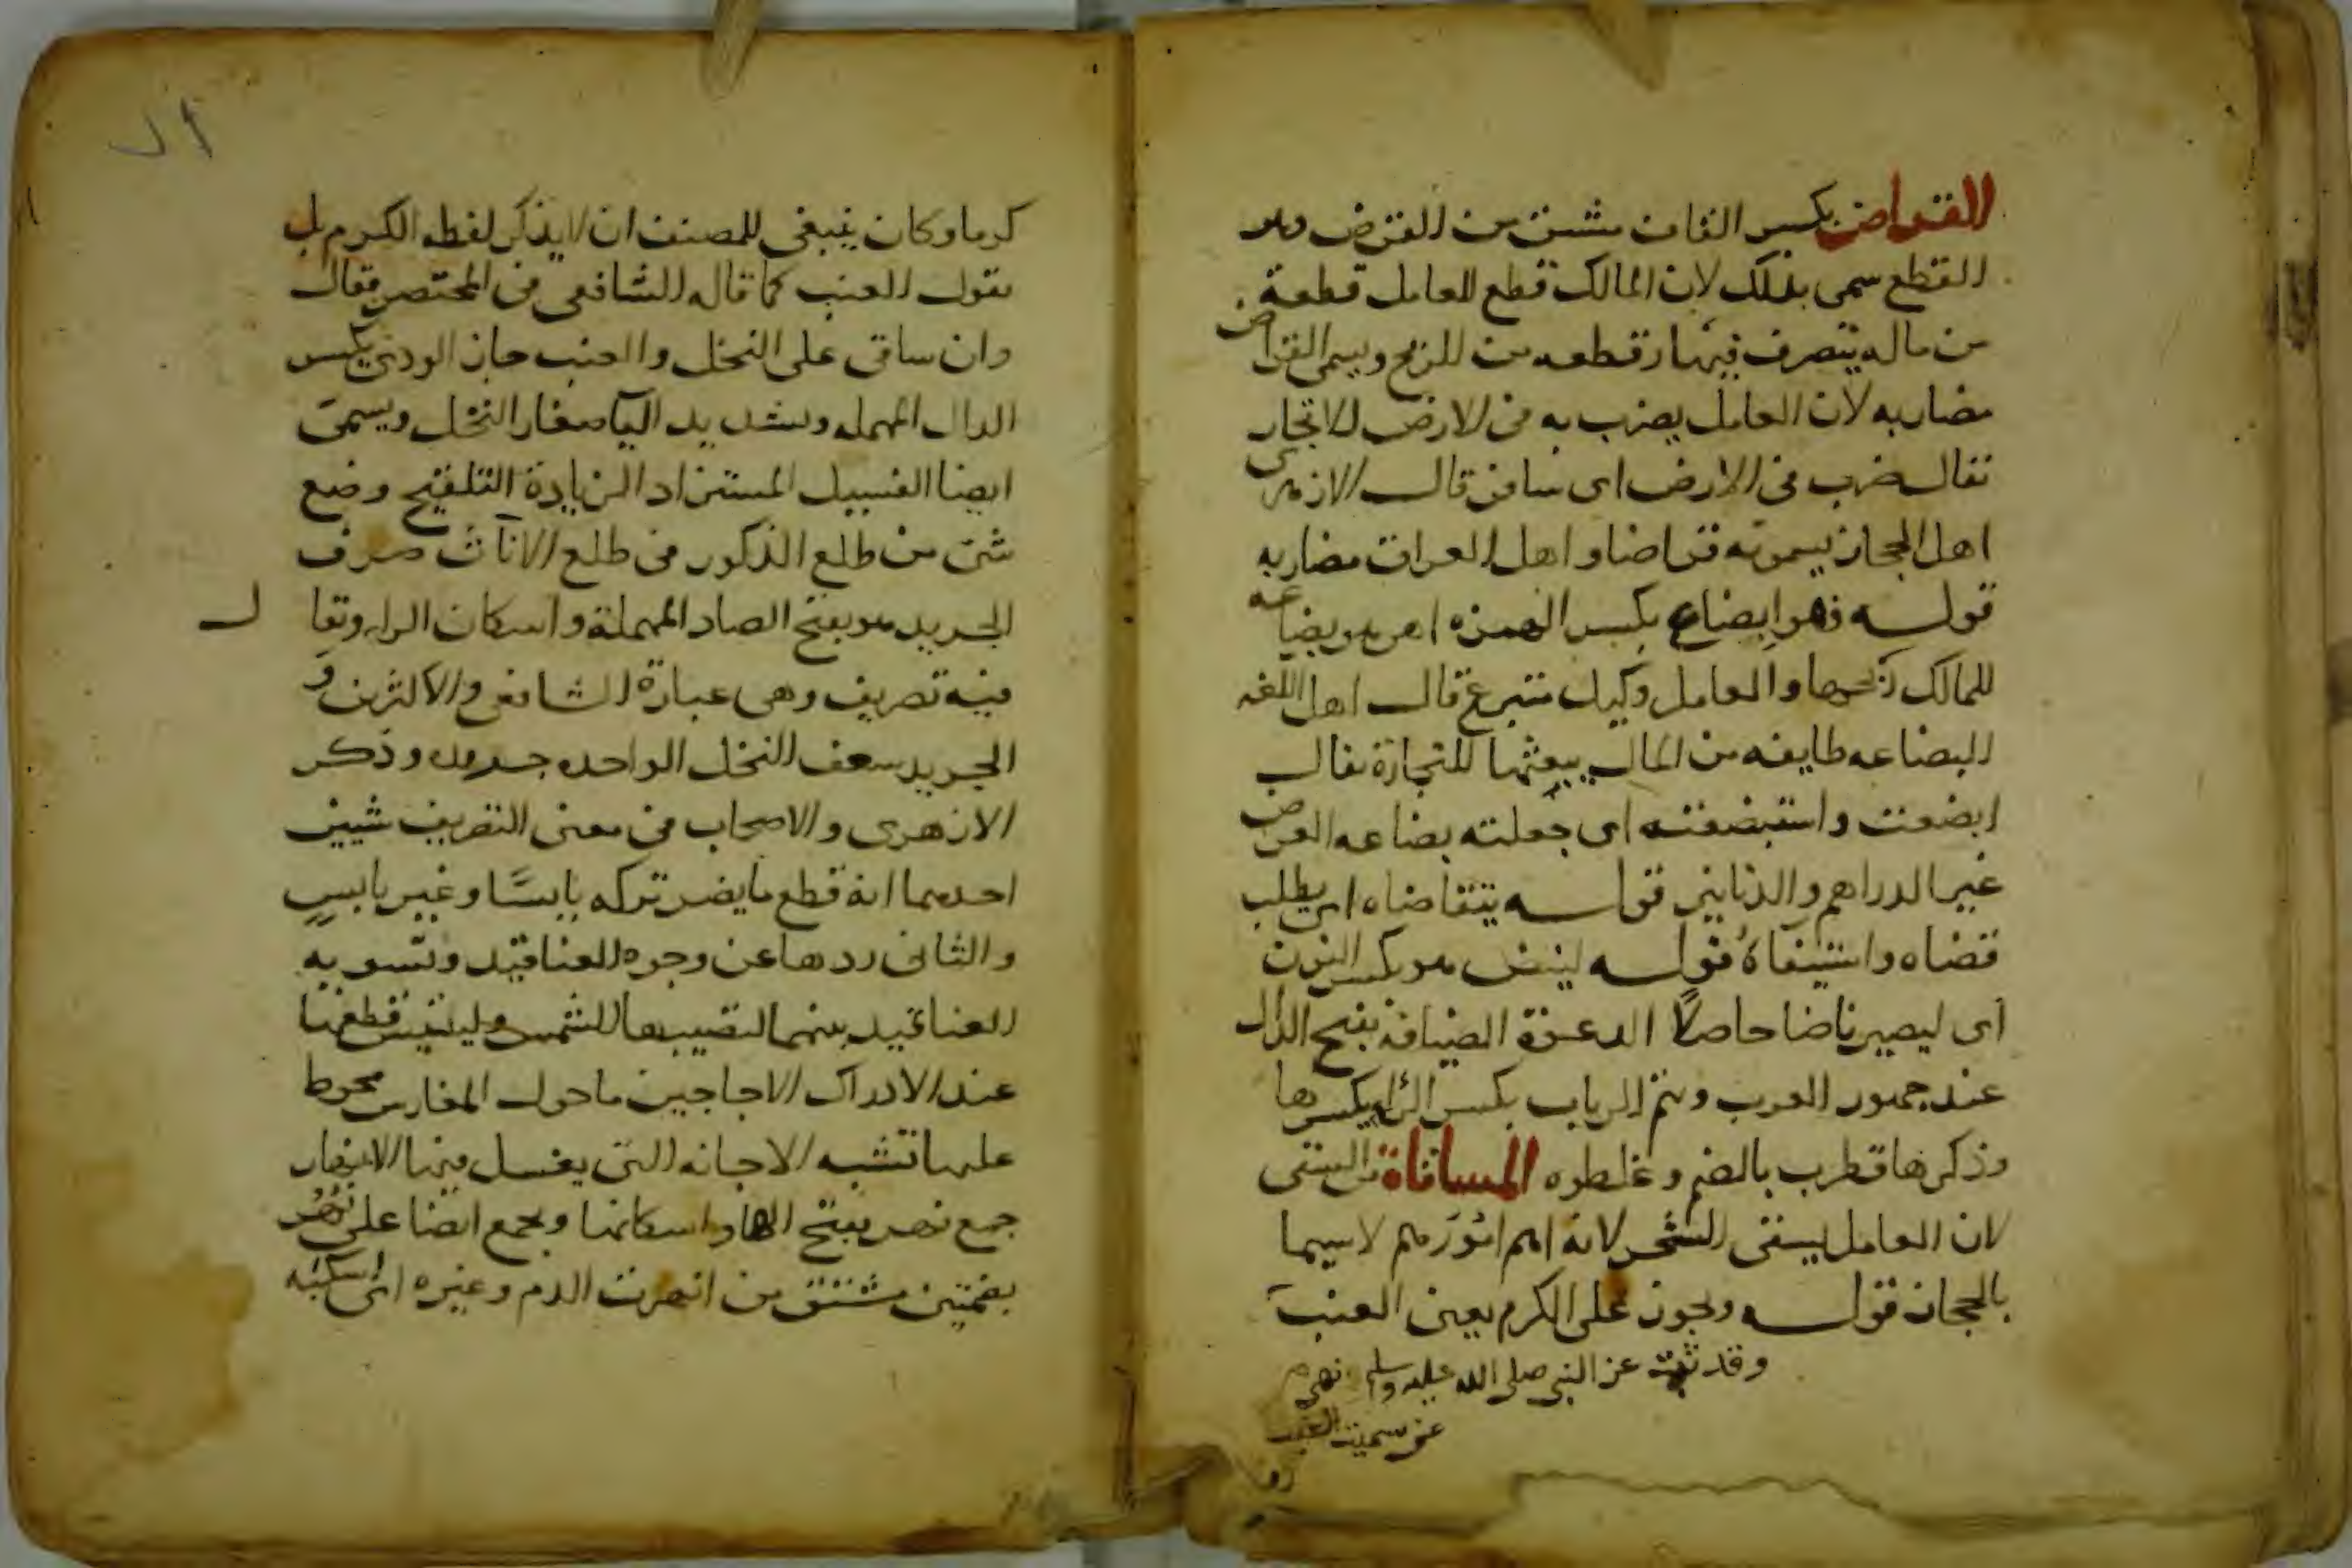 القراض بكسر القاف مشتق من القرض وهو
القطع سمى بذلك لان المالك قطع للعامل قطعة
من ماله يتصرف فيها وقطعه من الربح ويسمى القراض
مضاربه لان العامل يضرب به فى الارض للاتجار
يقال ضرب فى الارض اى سافر قال الازهرى
اهل الحجاز يسمونه قراضا واهل العراق مضاربه
قوله فهو ابضاع بكسر الهمزه اى هو بضاعه
للمالك ربحها والعامل وكيل متبرع قال اهل اللغه
البضاعه طايفه من المال يبعثها للتجارة يقال
ابضعت واستبضعته اى جعلته بضاعه العرض
غير الدراهم والدنانير قوله يتقاضاه اى يطلب
قضاه واستيفاه قوله لينض هو بكسر النون
اى ليصير ناضا حاصلا الدعوة الضيافة بفتح الدال
عند جمهور العرب وتيم الرباب بكسر الراء بكسرها
وذكرها قطرب بالضم وغلطوه المساقاة من السقى
لان العامل يسقى الشجر لانه اهم امورهم لا سيما
بالحجاز قوله ويجوز على الكرم يعنى العنب
وقد ثبت عن النبى صلى الله عليه وسلم نهى
عن تسميت العنب
كرما وكان ينبغى للمصنف ان لا يذكر لفظه الكرم بل
يقول العنب كما قاله الشافعى فى المختصر فقال
وان ساقى على النخل والعنب جاز الودى بكسر
الدال المهمله وتشديد اليآ صغار النخل ويسمى
ايضا الفسيل المستزاد الزيادة التلقيح وضع
شىء من طلع الذكور فى طلع الاناث صرف
الجريد هو بفتح الصاد المهملة واسكان الراء ويقال
فيه تصريف وهى عبارة الشافعى والاكثرين و
الجريد سعف النخل الواحده جريده وذكر
الازهرى والاصحاب فى معنى التصريف شيين
احدهما انه قطع ما يضر تركه يابسًا وغير يابسٍ
والثانى ردها عن وجوه العناقيد وتسويه
العناقيد بينهما لتصيبها الشمس وليتيسر قطعها
عند الادراك الاجاجين ما حول المغارس محوط
عليها تشبه الاجانه التى يغسل فيها الانهار
جمع نهر بفتح الهاء واسكانها ويجمع ايضا على نُهُر
بضمتين مشتق من انهرت الدم وغيره اى اسلته